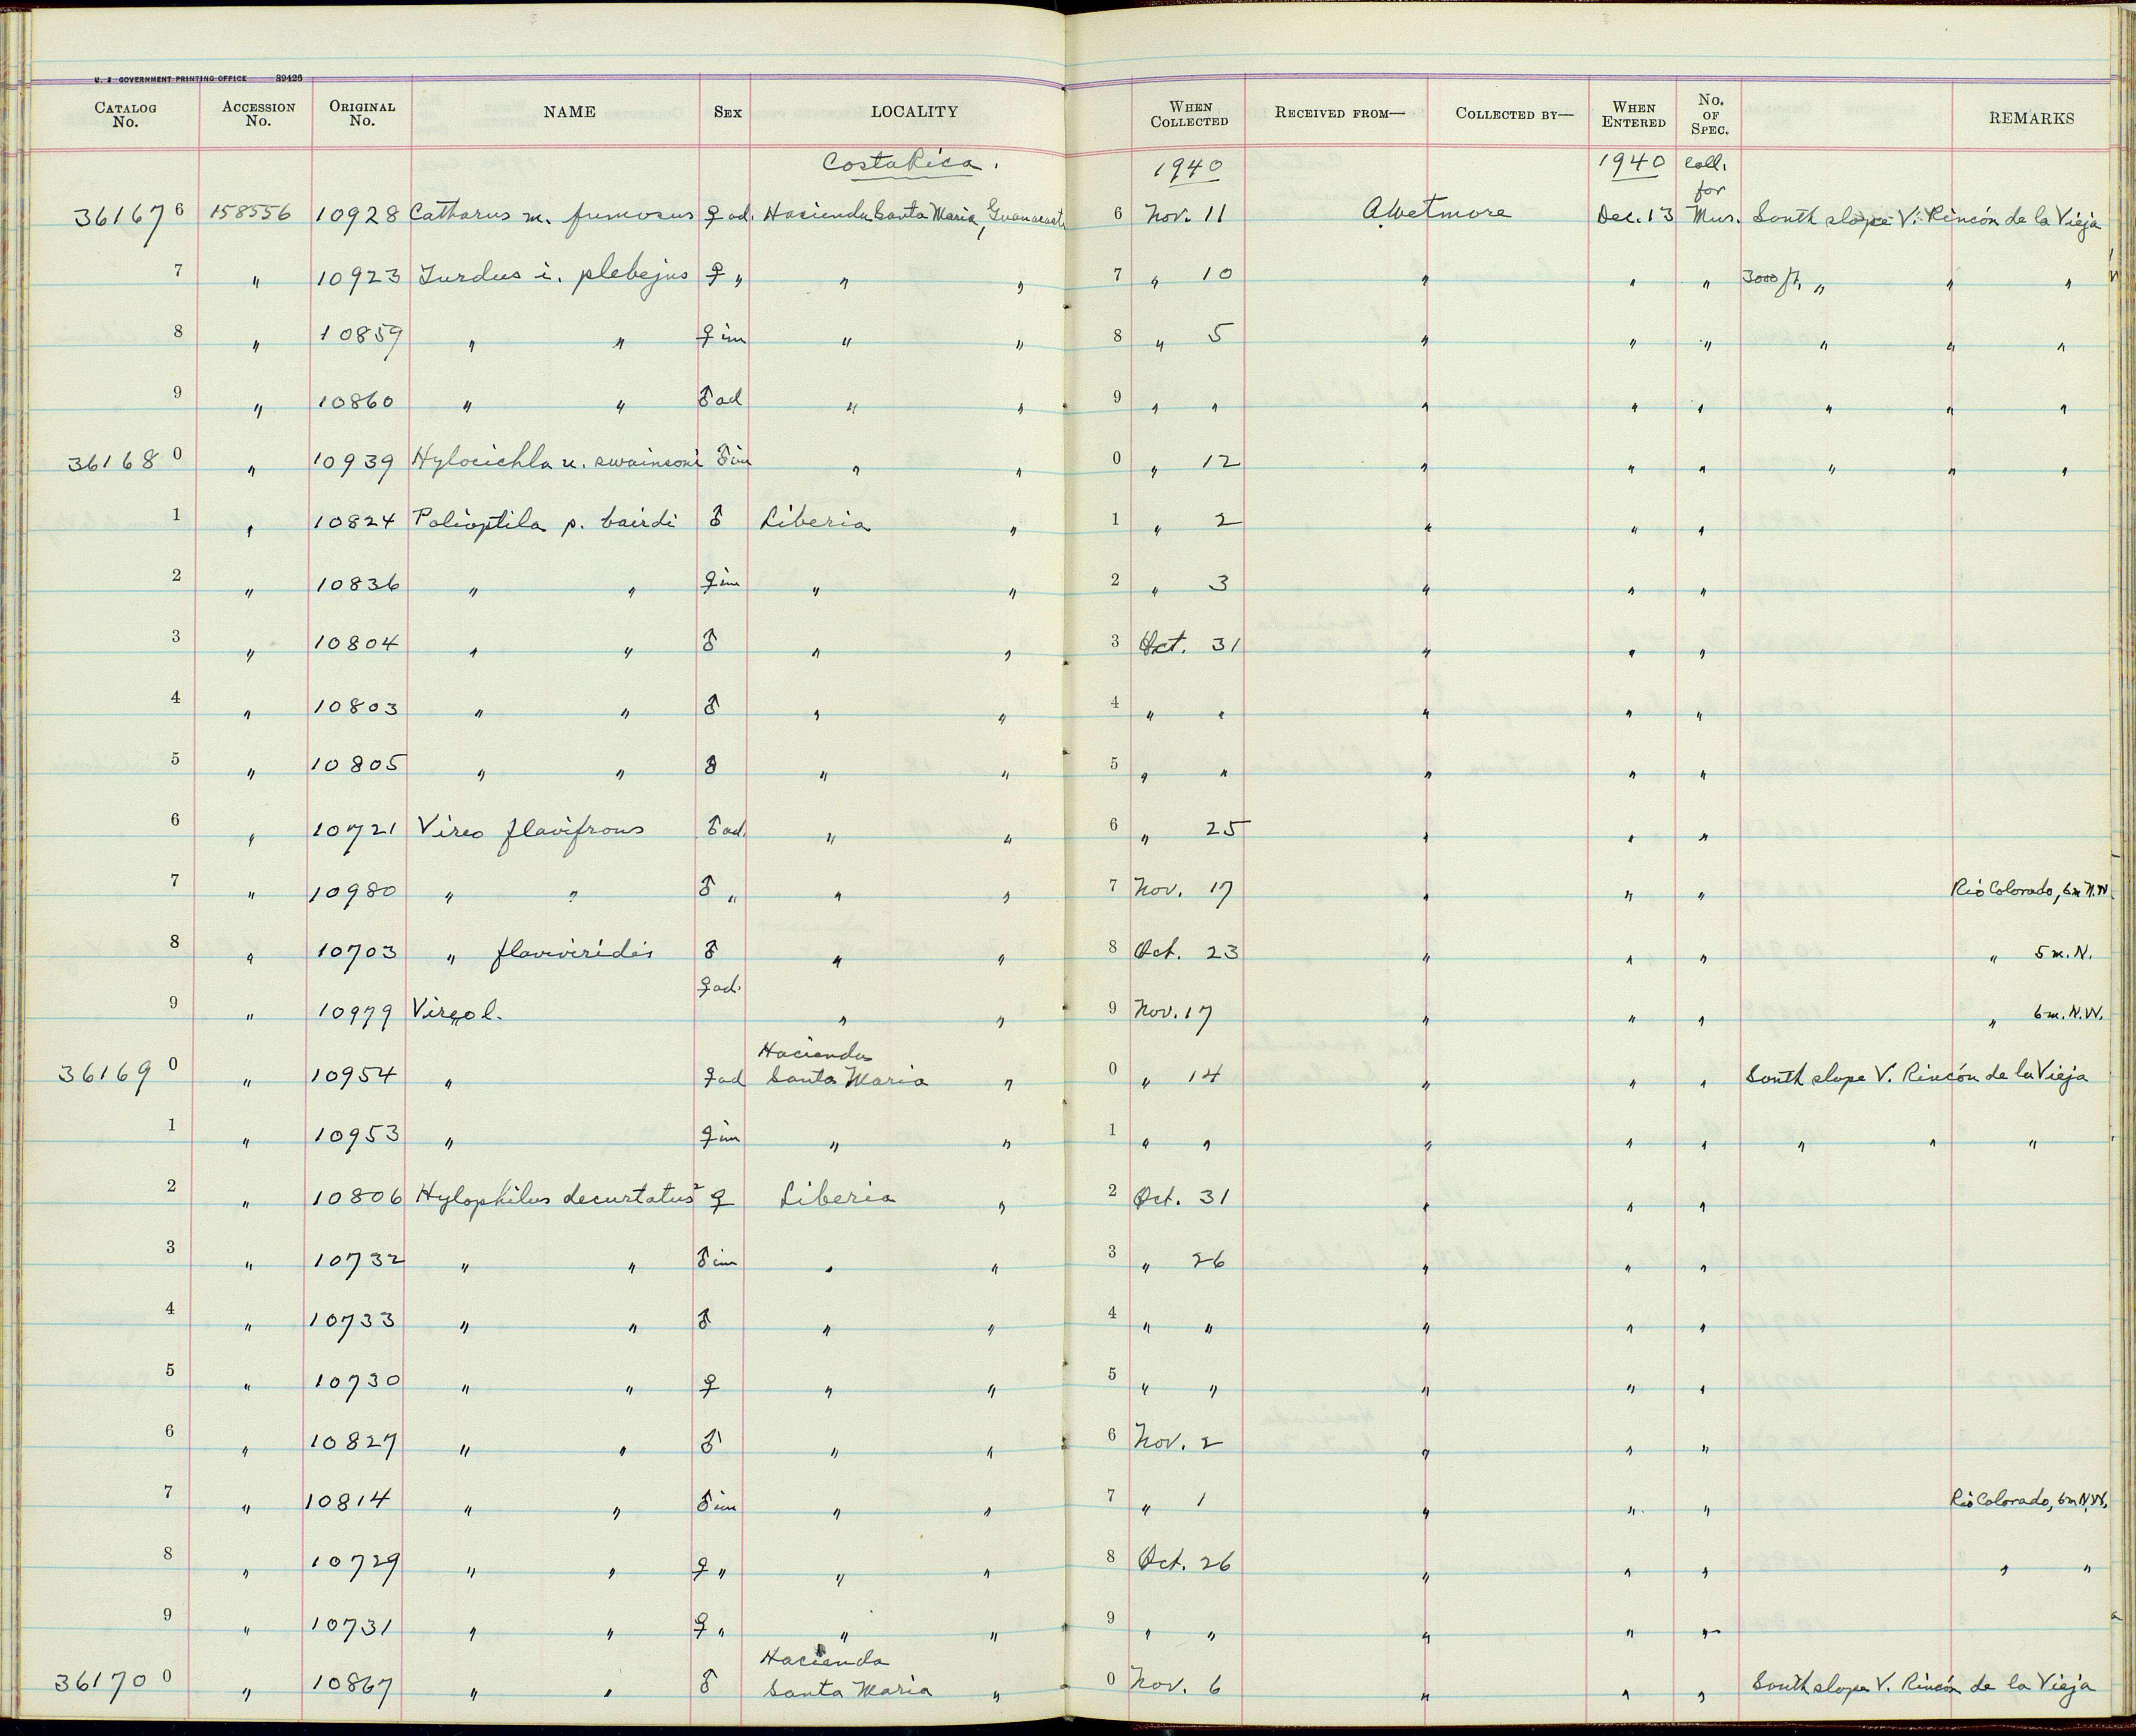 U. S. GOVERNMENT PRINTING OFFICE 89426
CATALOG No. ACCESSION No. ORIGINAL No. NAME SEX LOCALITY WHEN COLLECTED RECEIVED FROM— COLLECTED BY— WHEN ENTERED No. OF SPEC. REMARKS
Costa Rica. 1940 1940 Coll. for
361676 158556 10928 Catharus m. fumosus ♀ ad. Hacienda Santa Maria, Guanacaste 6 Nov. 11 A Wetmore Dec. 13 Mus. South slope V. Rincón de la Vieja
7 " 10923 Turdus i. plebejus ♀ " " " 7 " 10 " " " 3000 ft. " " "
8 " 10859 " " ♀ im " " 8 " 5 " " " " " "
9 " 10860 " " ♂ ad " " 9 " " " " " " " "
361680 " 10939 Hylocichla u. swainsoni ♂ im " " 0 " 12 " " " " " "
1 " 10824 Polioptila p. bairdi ♂ Liberia " 1 " 2 " " "
2 " 10836 " " ♀ im " " 2 " 3 " " "
3 " 10804 " " ♂ " " 3 Oct. 31 " " "
4 " 10803 " " ♂ " " 4 " " " " "
5 " 10805 " " ♂ " " 5 " " " " "
6 " 10721 Vireo flavifrons ♂ ad. " " 6 " 25 " " "
7 " 10980 " " ♂ " " " 7 Nov. 17 " " " Rio Colorado, 6m N.W.
8 " 10703 " flavoviridis ♂ " " 8 Oct. 23 " " " " 5 m. N.
9 " 10979 Vireo l. ♀ ad. " " 9 Nov. 17 " " " " 6m. N.W.
361690 " 10954 " ♀ ad Hacienda Santa Maria " 0 " 14 " " " South slope V. Rincón de la Vieja
1 " 10953 " ♀ im " " 1 " " " " " " " "
2 " 10806 Hylophilus decurtatus ♀ Liberia " 2 Oct. 31 " " "
3 " 10732 " " ♂ im " " 3 " 26 " " "
4 " 10733 " " ♂ " " 4 " " " " "
5 " 10730 " " ♀ " " 5 " " " " "
6 " 10827 " " ♂ " " 6 Nov. 2 " " "
7 " 10814 " " ♂ im " " 7 " 1 " " " Rio Colorado, 6m N.W.
8 " 10729 " " ♀ " " " 8 Oct. 26 " " " " "
9 " 10731 " " ♀ " " " 9 " " " " "
361700 " 10867 " " ♂ Hacienda Santa Maria " 0 Nov. 6 " " " South slope V. Rincón de la Vieja